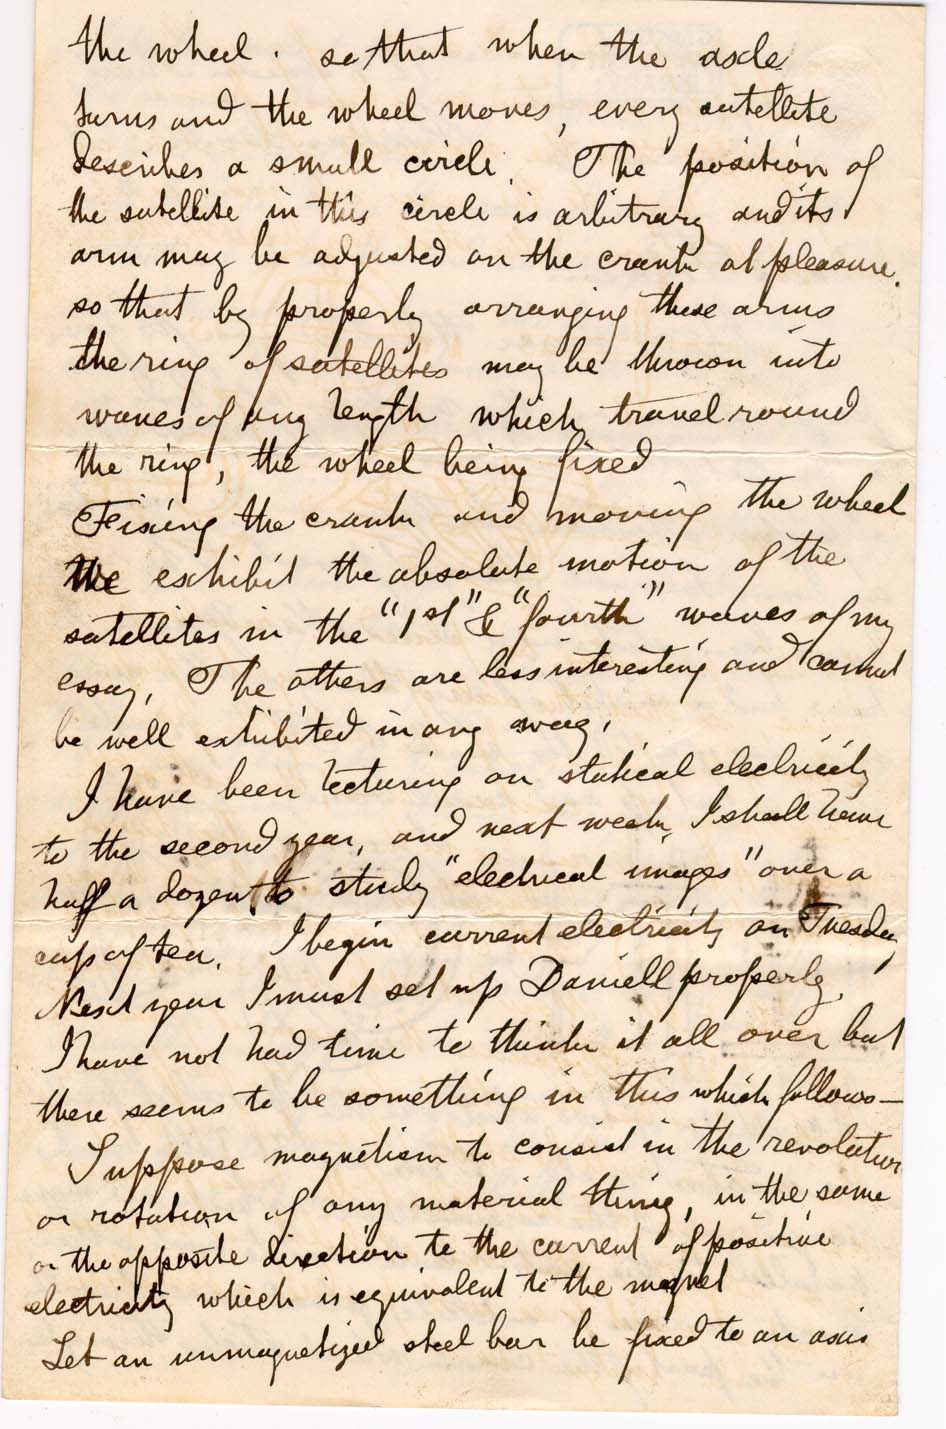 the wheel. so that when the axle
turns and the wheel moves, every satellite
describes a small circle. The position of
the satellite in this circle is arbitrary and its
arm may be adjusted on the crank at pleasure.
so that by properly arranging these arms
the ring of satellites may be thrown into
waves of any length which travel round
the ring, the wheel being fixed
Fixing the crank and moving the wheel
We exhibit the absolute motion of the
satellites in the "1st" & "fourth" waves of my
essay, The others are less interesting and cannot
be well exhibited in any way.
I have been lecturing on statical electricity
to the second year, and next week, I shall have
half a dozen to study "electrical images" over a
cup of tea. I begin current electricity on Tuesday,
Next year I must set up Daniell properly,
I have not had time to think it all over but
there seems to be something in this which follows—
Suppose magnetism to consist in the revolution
or rotation of any material thing, in the same
or the opposite direction to the current of positive
electricity which is equivalent to the magnet
Let an unmagnetized steel bar be fixed to an axis